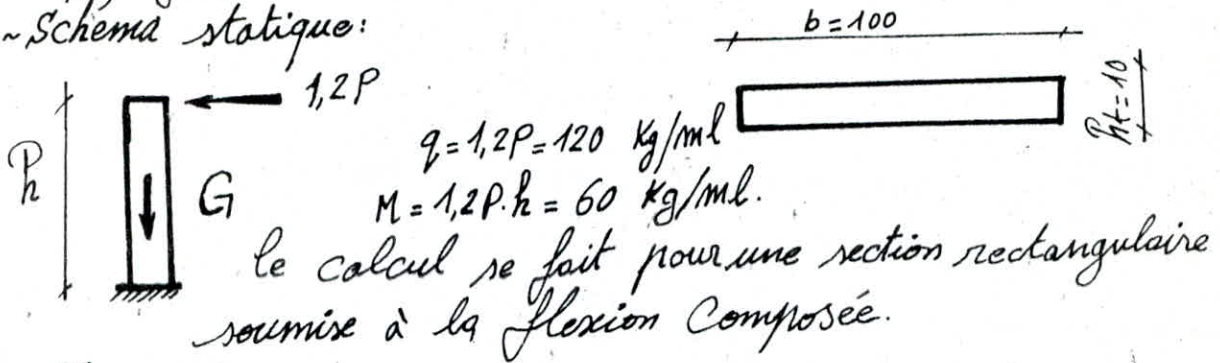 ~ Schéma statique:
b=100
1,2P
h
ht=10
q=1,2P=120 Kg/ml
G
M=1,2P.h=60 Kg/ml.
le calcul se fait pour une section rectangulaire
soumise à la flexion Composée.